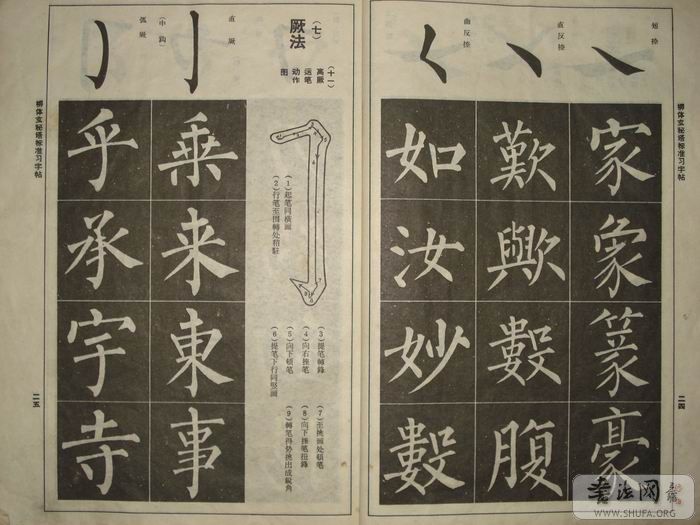 柳体玄秘塔标准习字帖
二四
短捺
家
象
篆
豪
直反捺
歎
歟
數
腹
曲反捺
如
汝
妙
數
(七)
厥法
(十一)
高厥
运笔
动作
图
(1)起笔同横画
(2)行笔至围转处稍驻
(3)提笔转锋
(4)向右捺笔
(5)向下顿笔
(6)提笔下行同竖画
(7)至挑画处顿笔
(8)向下捺笔扭锋
(9)转笔得势挑出成锐角
直厥
(中鈎)
乘
来
東
事
弧厥
乎
承
宇
寺
柳体玄秘塔标准习字帖
二五
書法网
WWW.SHUFA.ORG